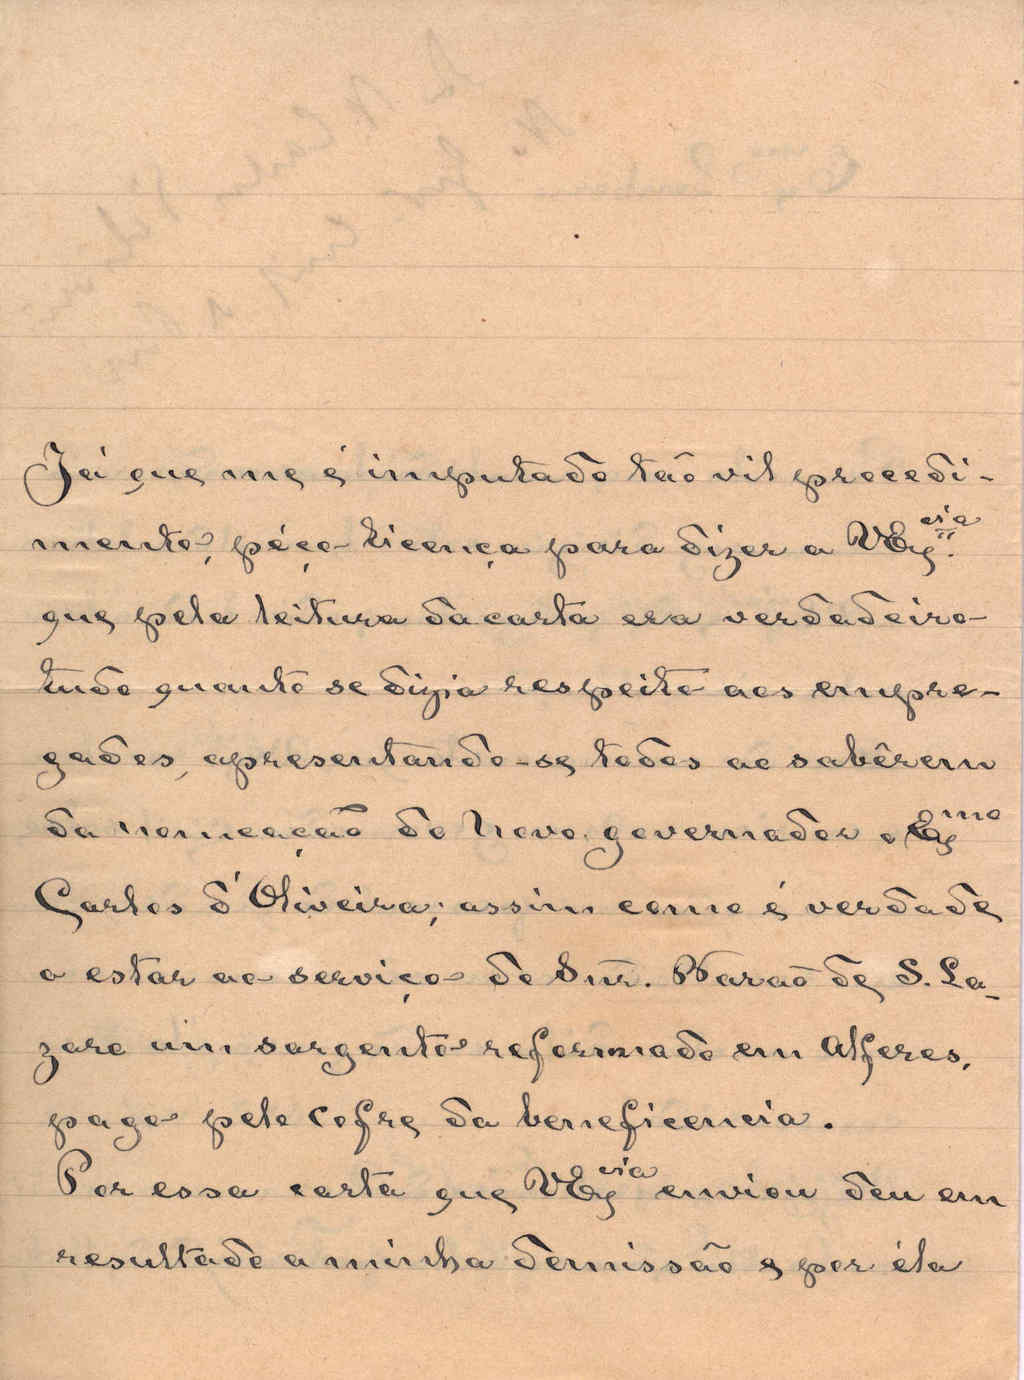 Já que me é imputado tão vil procedi-
mento, péço licença para dizer a VEx.cia
que pela leitura da carta era verdadeiro
tudo quanto se dizia respeito aos empre-
gados, apresentando-se todos ao sabêrem
da nomeação do Novo governador o Exmo
Carlos d'Oliveira; assim como é verdade
o estar ao serviço do Snr. Barão de S. La-
zaro um sargento reformado em Alferes,
pago pelo Cofre da beneficencia.
Por essa carta que VExcia enviou deu em
resultado a minha demissão e por éla